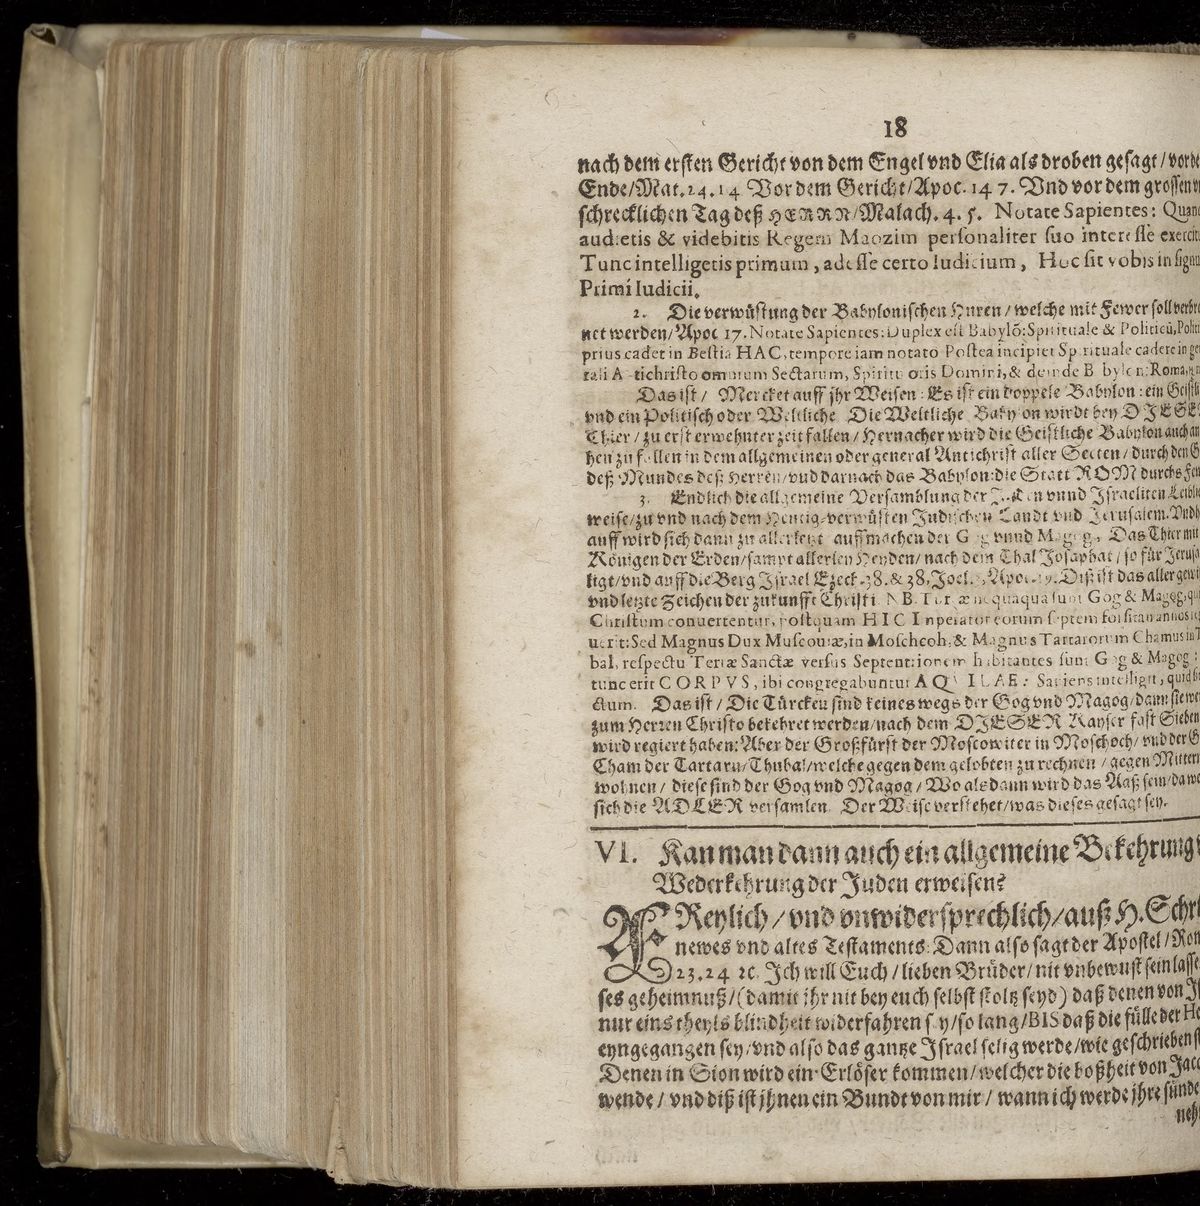 18
nach dem ersten Gericht von dem Engel vnd Elia als droben gesagt / vor de
Ende/Mat. 24. 14 Vor dem Gericht/Apoc. 14 7. Vnd vor dem grossen
schrecklichen Tag deß HERRN/Malach. 4. 5. Notate Sapientes: Quan
audietis & videbitis Regem Maozim personaliter suo interesse exerci
Tunc intelligetis primum, adesse certo Iudicium, Hoc sit vobis in sign
Primi Iudicii.
2. Die verwüstung der Babylonischen Huren / welche mit Fewer soll verbre
net werden/Apoc 17. Notate Sapientes: Duplex est Babylõ: Spirituale & Politicũ, Polit
prius cadet in Bestia HAC, tempore iam notato Postea incipiet Spirituale cadere in ge
rali A tichristo omnium Sectarum, Spiritu oris Domini, & deinde B bylon: Roma,
Das ist / Mercket auff jhr Weisen: Es ist ein doppele Babylon: ein Geistli
vnd ein Politisch oder Weltliche Die Weltliche Babylon wirdt bey DIESE
Thier / zu erst erwehnter zeit fallen / Hernacher wird die Geistliche Babylon auch an
hen zu fallen in dem allgemeinen oder general Antichrist aller Secten / durch den G
deß Mundes deß Herren/vnd darnach das Babylon: die Statt ROM durchs Few
3. Endlich die allgemeine Versamblung der Juden vnnd Israeliten Leibli
weise/zu vnd nach dem Heutig-verwüsten Jüdischen Landt vnd Jerusalem.
auff wird sich dann zu allerletzt auffmachen der Gog vnnd Magog, Das Thier mit
Königen der Erden/sampt allerley Heyden/nach dem Thal Josaphat / so für Jerusa
ligt/vnd auff die Berg Israel Ezech. 38. & 38, Joel. 3, Apoc. 19. Diß ist das aller gewi
vnd letzte Zeichen der zukunfft Christi. NB. Turcæ nequaquam sunt Gog & Magog, qui
Christum conuertentur, postquam HIC Imperator eorum septem forsitan annos
uerit: Sed Magnus Dux Muscouiæ, in Moschcoh, & Magnus Tartarorum Chamus in T
bal, respectu Terræ Sanctæ versus Septentrionem habitantes sunt Gog & Magog:
tunc erit CORPVS, ibi congregabuntur AQVILAE: Sapiens intelligit, quid
ctum. Das ist / Die Türcken sind keines wegs der Gog vnd Magog/dann sie we
zum Herren Christo bekehret werden/nach dem DIESER Kayser fast Sieben
wird regiert haben: Aber der Großfürst der Moscowiter in Moschoch/ vnd der G
Cham der Tartarn/Thubal/welche gegen dem gelobten zu rechnen / gegen Mittern
wohnen / diese sind der Gog vnd Magog / Wo alsdann wird das Aaß sein/da we
sich die ADLER versamlen. Der Weise verstehet/was dieses gesagt sey.
VI. Kan man dann auch ein allgemeine Bekehrung
Wederkehrung der Juden erweisen?
FReylich / vnd vnwidersprechlich/auß H. Schri
newes vnd altes Testaments: Dann also sagt der Apostel / Rom
23. 24 ꝛc. Ich will Euch / lieben Brüder / nit vnbewust sein lasse
ses geheimnuß/(damit jhr nit bey euch selbst stoltz seyd) daß denen von Is
nur eins theyls blindheit widerfahren sey/so lang/BIS daß die fülle der He
eyngegangen sey/vnd also das gantze Israel selig werde/wie geschrieben
Denen in Sion wird ein Erlöser kommen/welcher die boßheit von Jaco
wende / vnd diß ist jhnen ein Bundt von mir / wann ich werde jhre sünde
neh